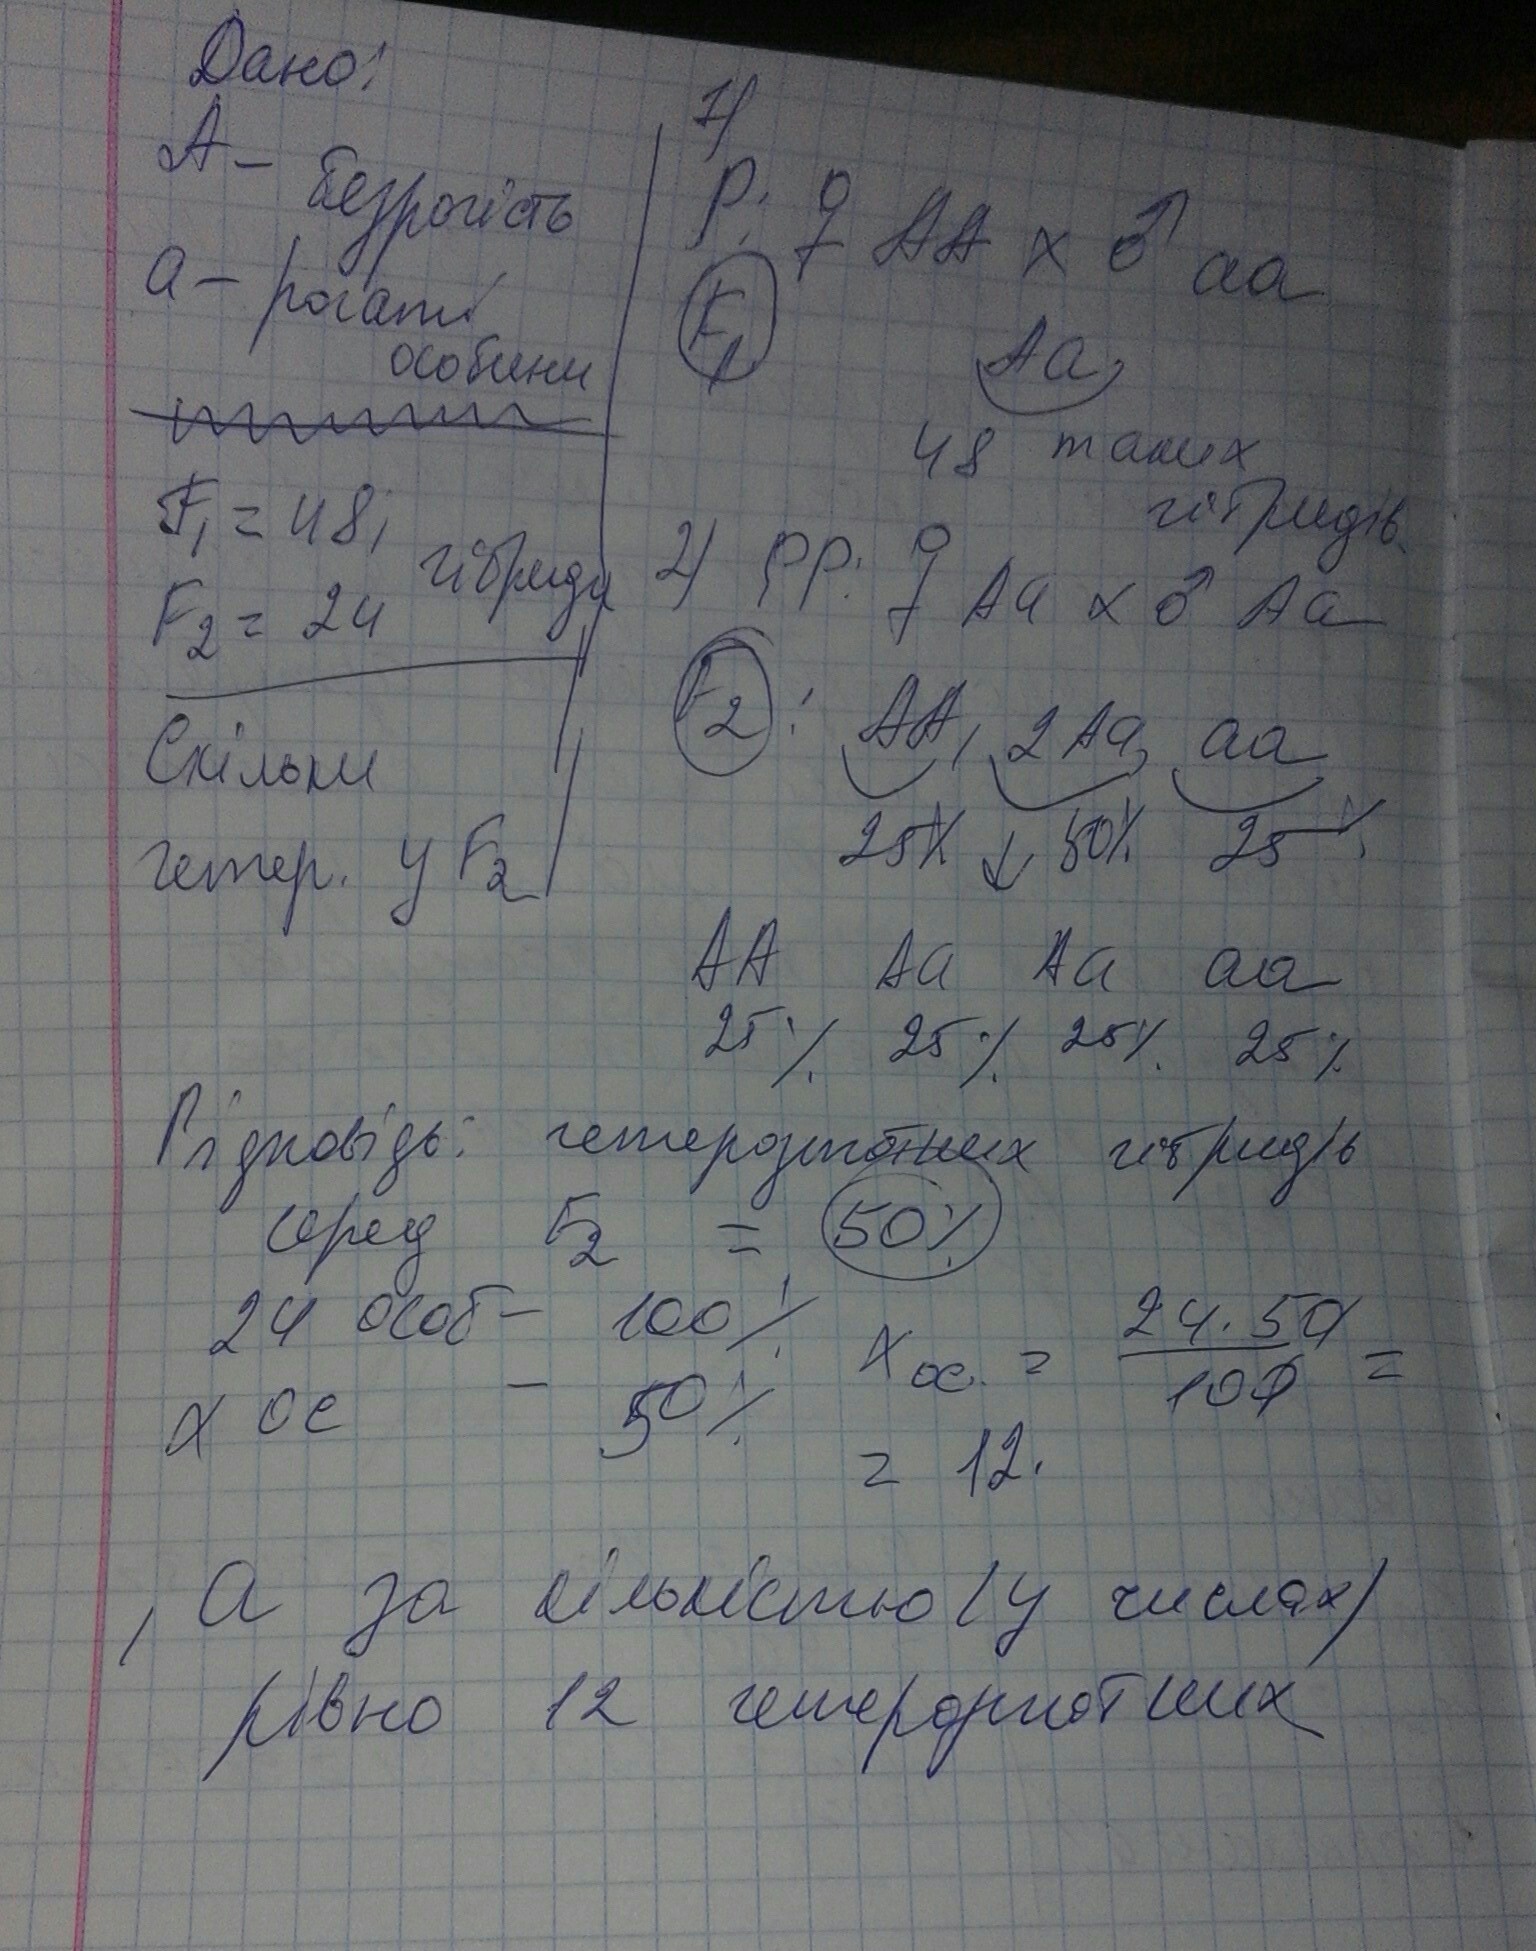 Дано:
А – безрогість
а – рогаті
особини
F₁ = 48;
гібриди
F₂ = 24
Скільки
гетер. у F₂
1)
P: ♀ АА х ♂ аа
F₁
Аа
48 таких
гібридів.
2) РР: ♀ Аа х ♂ Аа
F₂: АА, 2Аа, аа
25% ↓ 50% 25%
АА Аа Аа аа
25% 25% 25% 25%
Відповідь: гетерозиготних гібридів
серед F₂ = 50%
24 особ – 100%
х ос – 50%
х ос. = 24·50/100 =
= 12.
, а за кількістю (у числах)
рівно 12 гетерозиготних